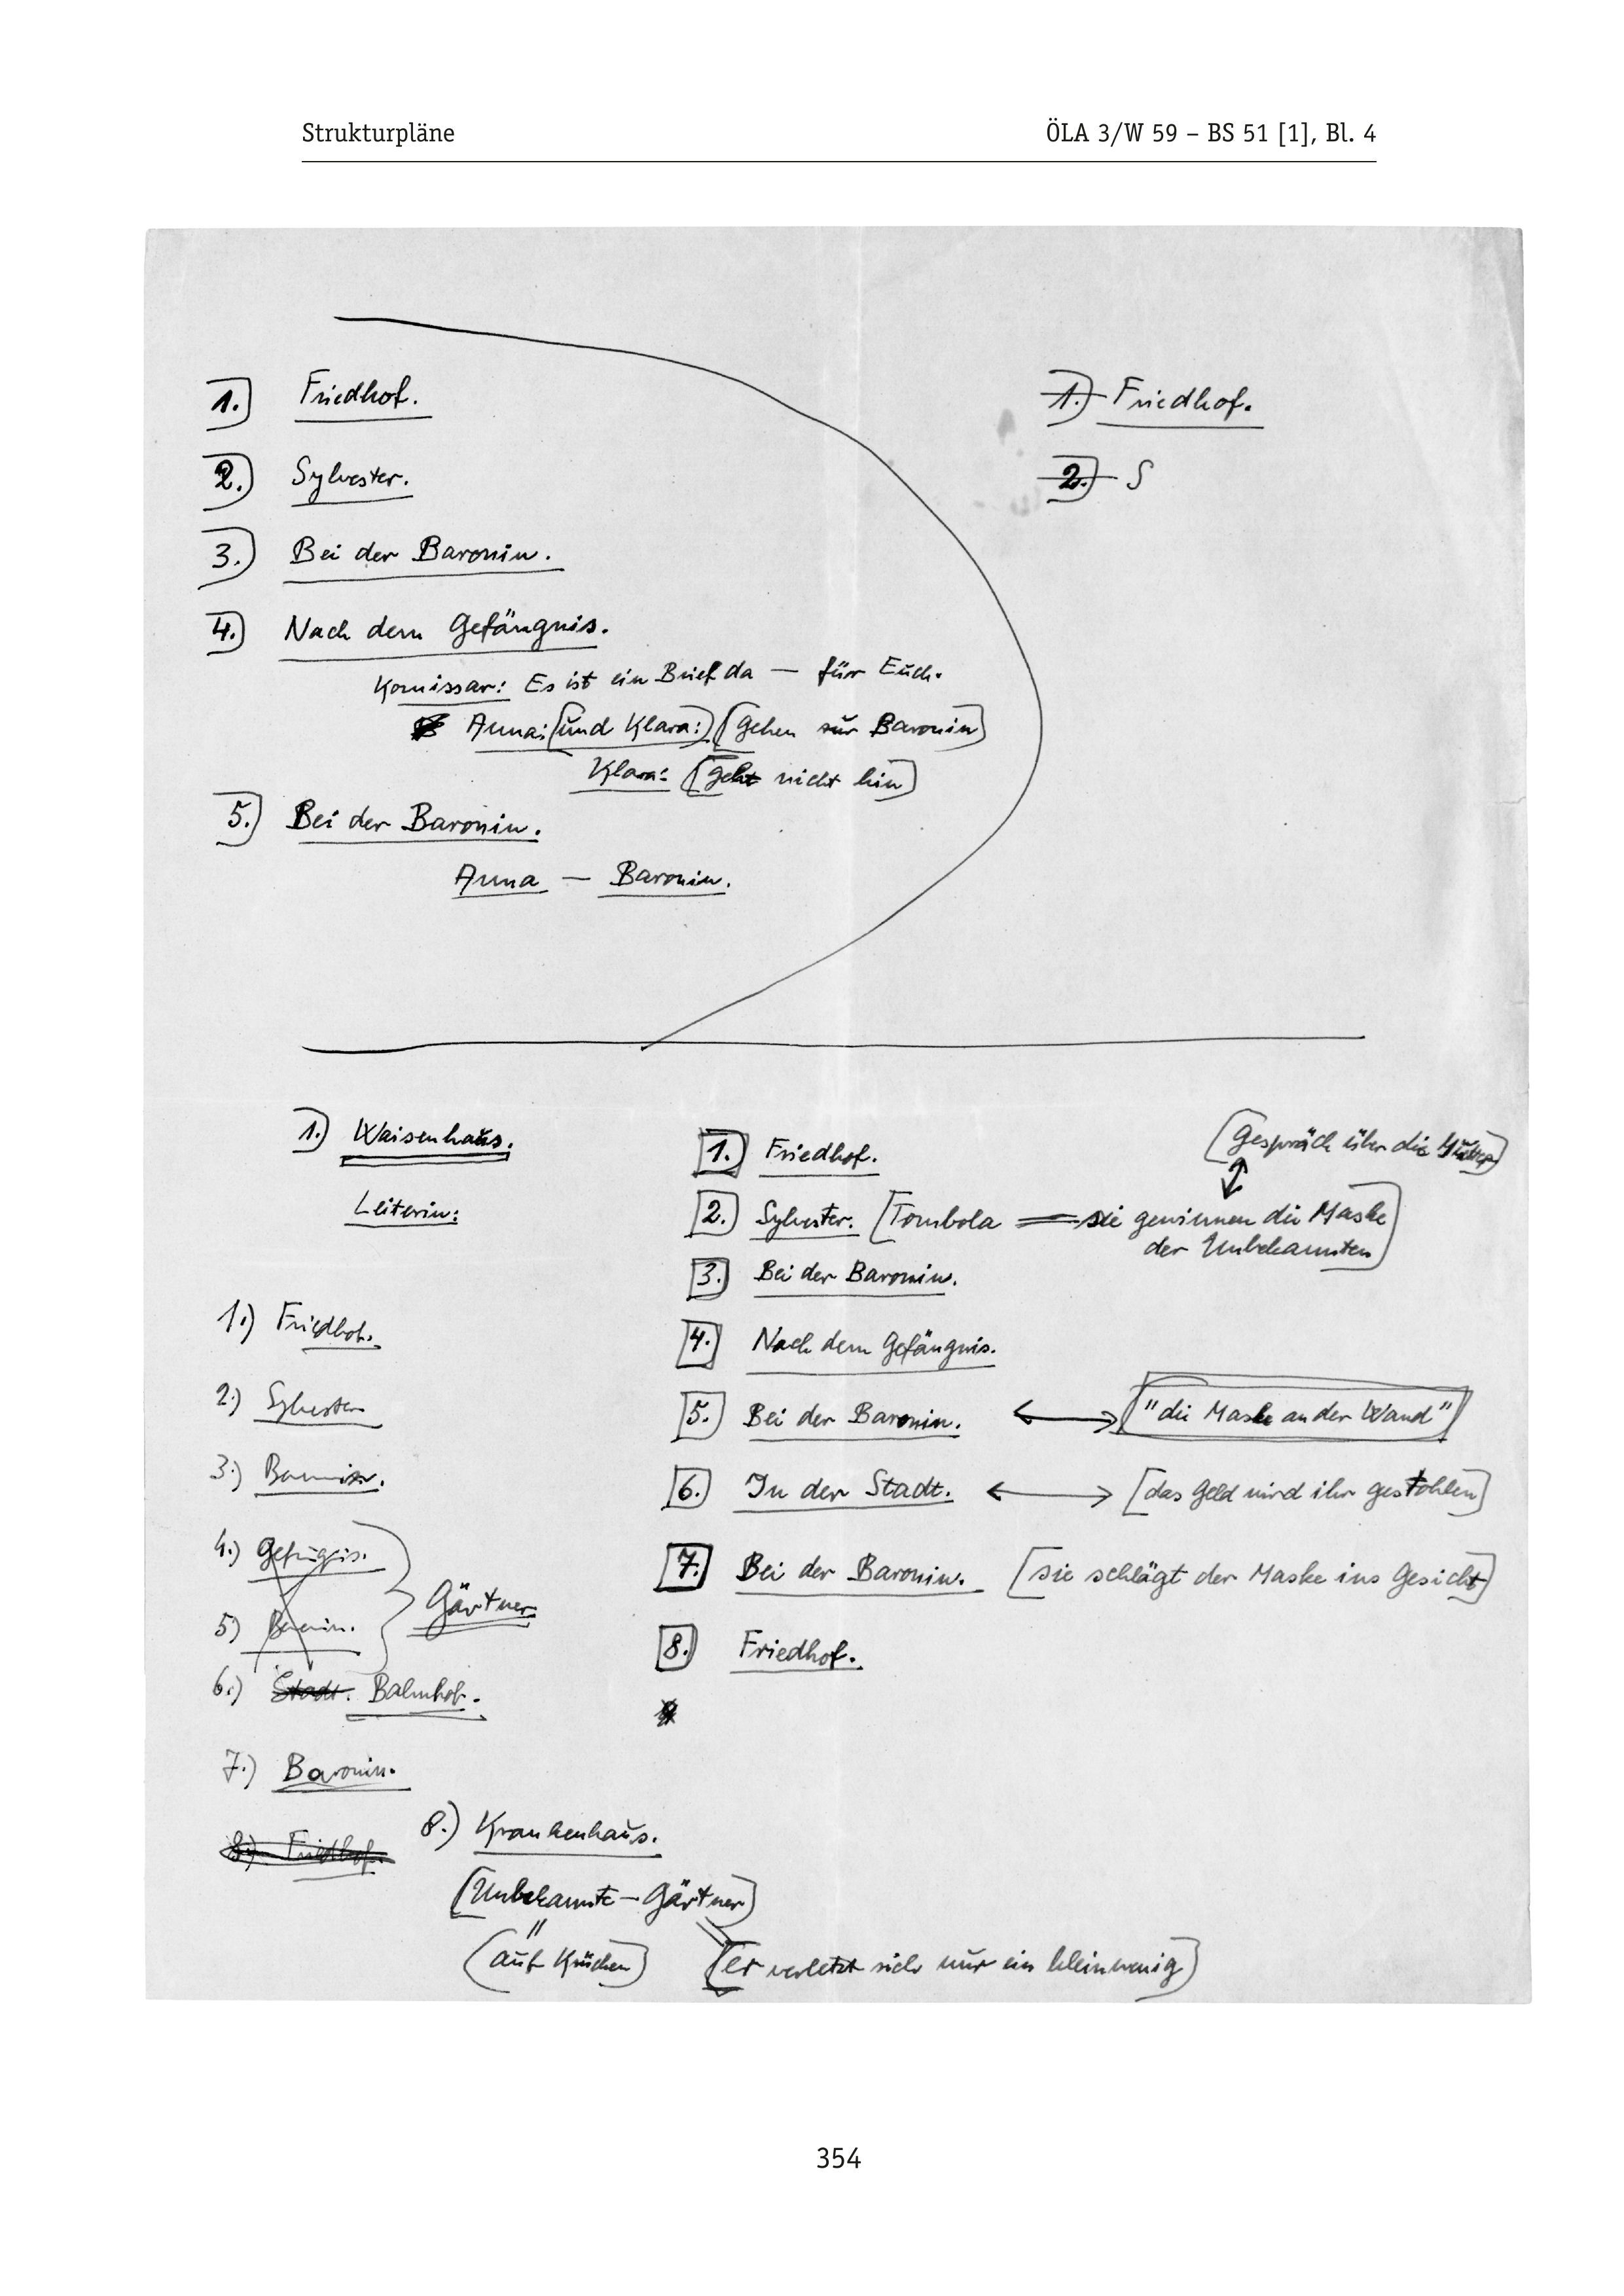 Strukturpläne ÖLA 3/W 59 – BS 51 [1], Bl. 4
1.) Friedhof.
2.) Sylvester.
3.) Bei der Baronin.
4.) Nach dem Gefängnis.
Komissar: Es ist ein Brief da — für Euch.
Anna: (und Klara:) (gehen zur Baronin)
Klara: (geht nicht hin)
5.) Bei der Baronin.
Anna — Baronin.
1.) Friedhof.
2.) S
1.) Waisenhaus.
Leiterin:
1.) Friedhof.
2.) Sylvester
3.) Baronin.
4.) Gefängnis.
5.) Baronin.
Gärtner
6.) Stadt. Bahnhof.
7.) Baronin.
8.) Friedhof.
8.) Krankenhaus.
(Unbekannte — Gärtner)
(auf Krücken) (er verletzt sich nur ein klein wenig)
1.) Friedhof.
(Gespräch über die
2.) Sylvester. (Tombola — sie gewinnen die Maske
der Unbekannten)
3.) Bei der Baronin.
4.) Nach dem Gefängnis.
5.) Bei der Baronin. ("die Maske an der Wand")
6.) In der Stadt. [das Geld wird ihr gestohlen]
7.) Bei der Baronin. [sie schlägt der Maske ins Gesicht]
8.) Friedhof.
354